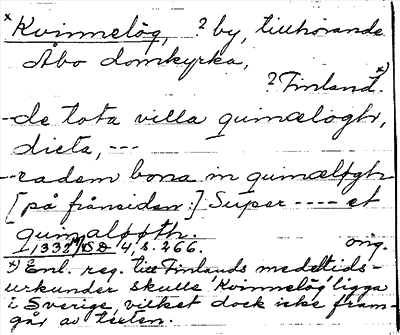 x Kvinnelög, ? by, tillhörande
Åbo domkyrka,
? Finland. x)
-de tota villa quinælögh,
dicta, ---
--eadem bona in quinæløgh
[på frånsidan:] Super ---- et
quinaløøth.
1332 SD 4, s. 266. orig.
x) Enl. reg. till Finlands medeltids-
urkunder skulle 'Kvinnelög' ligga
i Sverige, vilket dock icke fram-
går av texten.